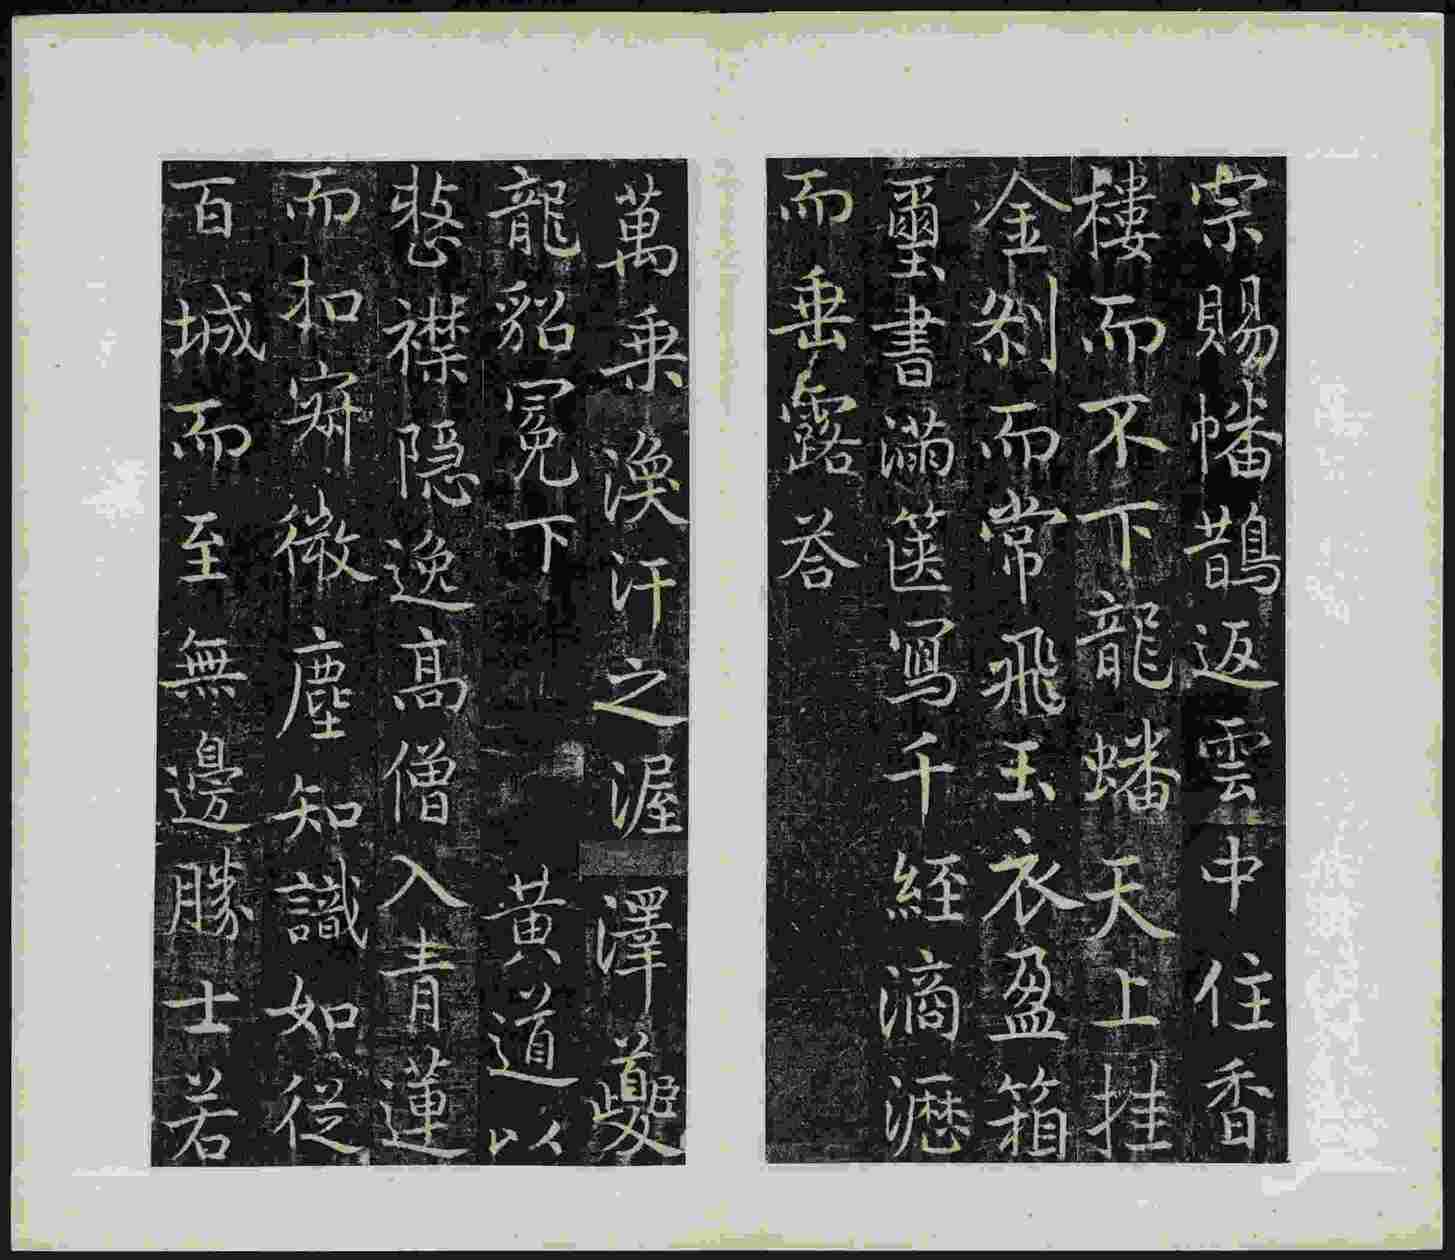 宗賜幡鵲返雲中住香
樓而不下龍蟠天上挂
金剎而常飛玉衣盈箱
璽書滿篋寫千經滴瀝
而垂露荅
萬乘渙汗之渥澤夔
龍貂冕下黃道以
整襟隱逸高僧入青蓮
而扣寂微塵知識如從
百城而至無邊勝士若